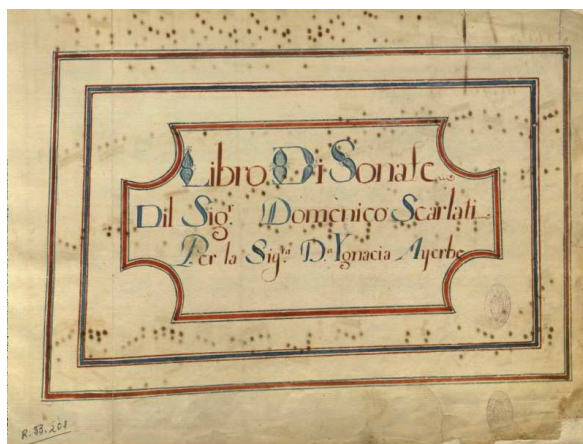 Libro Di Sonate
Dil Sig.r Domenico Scarlati
Per la Sig.ra D.a Ygnacia Ayerbe
R.33.201